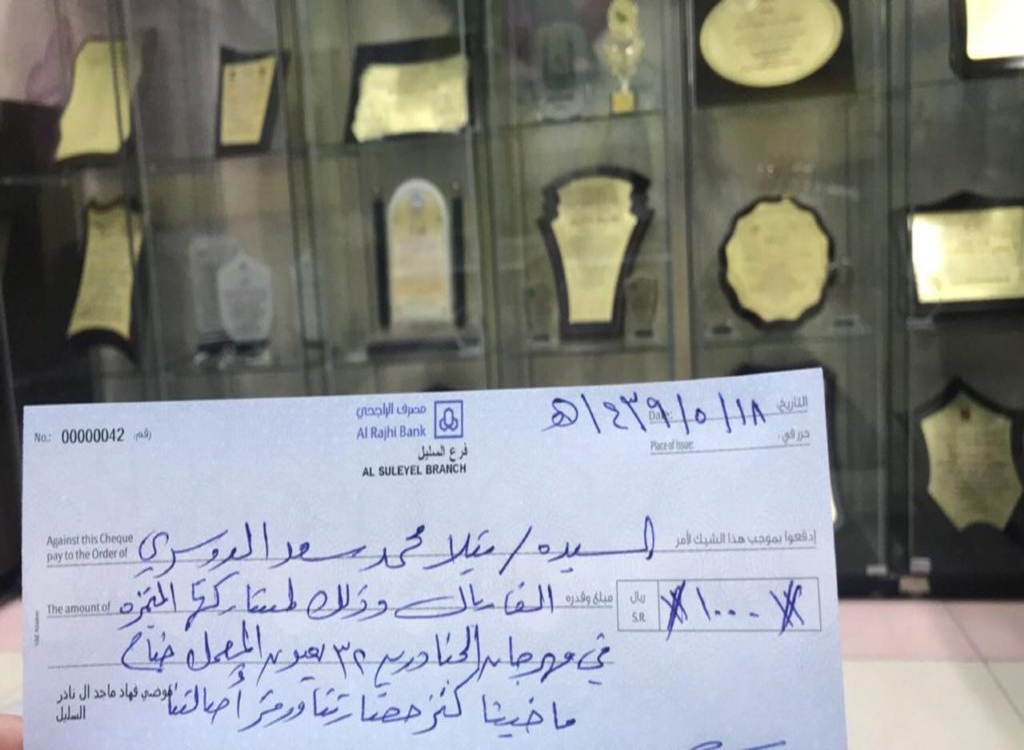 No.: 00000042 رقم:
مصرف الراجحي
Al Rajhi Bank
فرع السليل
AL SULEYEL BRANCH
التاريخ: Date: ١٨/٥/١٤٣٩هـ
حرر في: Place of Issue:
Against this Cheque
pay to the Order of
إدفعوا بموجب هذا الشيك لأمر السيده / متيلا محمد سعد الدوسري
The amount of
مبلغ وقدره الف ريال وذلك لمشاركتها المتميزه
ريال
S.R. ١٠٠٠
في مهرجان الجنادريه ٣٢
ماضينا كنز حضارتنا ورمز أصالتنا
فهاد ماجد ال ناذر
السليل